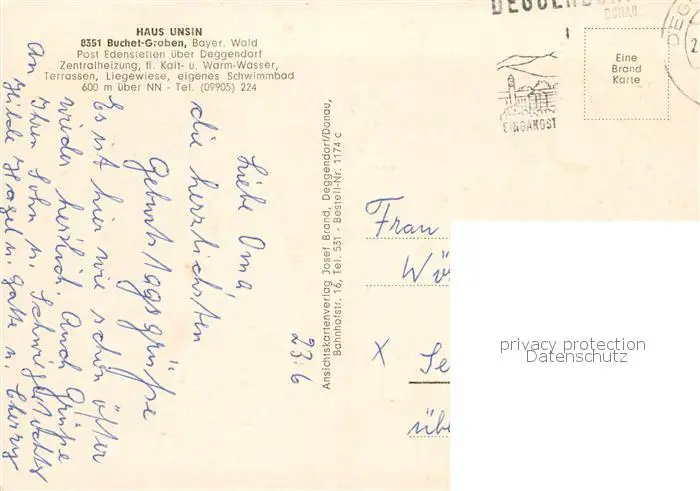 HAUS UNSIN
8351 Buchet-Graben, Bayer. Wald
Post Edenstetten über Deggendorf
Zentralheizung, fl. Kalt- u. Warm-Wasser,
Terrassen, Liegewiese, eigenes Schwimmbad
600 m über NN - Tel. (09905) 224
23.6
Liebe Oma,
die herzlichsten
Geburtstagsgrüße
Es ist hier wie schon öfter
wieder herrlich. Auch Grüße
an Ihren Sohn u. Schwiegertochter
Hilde Hagel u. Gatte u. Cherry
Ansichtskartenverlag Josef Brand, Deggendorf/Donau,
Bahnhofstr. 16, Tel. 531 - Bestell-Nr. 1174 c
DEGGENDORF
DONAU
Eine
Brand
Karte
Frau
X
übe
privacy protection
Datenschutz